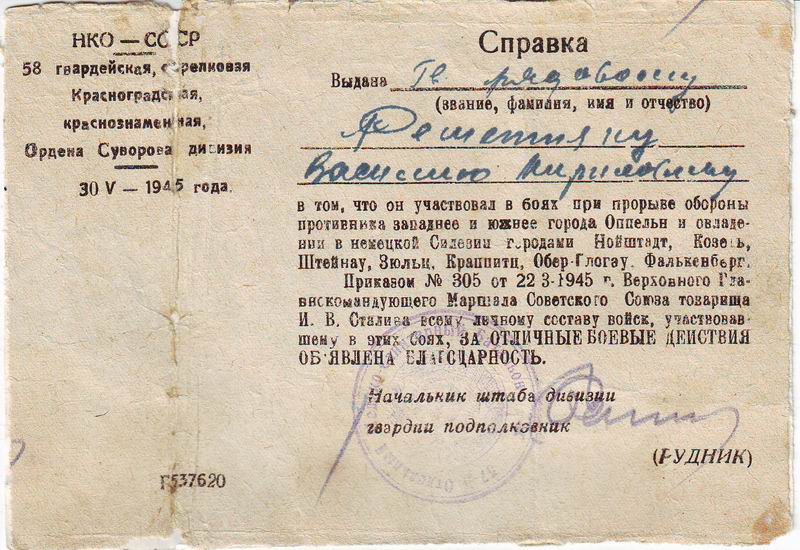 НКО — СССР
58 гвардейская, стрелковая
Красноградская,
краснознаменная,
Ордена Суворова дивизия
30 V — 1945 года.
Г537620
Справка
Выдана Гв. рядовому
(звание, фамилия, имя и отчество)
Решетняку
Василию Кириловичу
в том, что он участвовал в боях при прорыве обороны
противника западнее и южнее города Оппельн и овладе-
нии в немецкой Силезии городами Нойштадт, Козель,
Штейнау, Зюльц, Краппитц, Обер-Глогау, Фалькенберг.
Приказом № 305 от 22 3-1945 г. Верховного Гла-
внокомандующего Маршала Советского Союза товарища
И. В. Сталина всему личному составу войск, участвовав-
шему в этих боях, ЗА ОТЛИЧНЫЕ БОЕВЫЕ ДЕЙСТВИЯ
ОБ'ЯВЛЕНА БЛАГОДАРНОСТЬ.
Начальник штаба дивизии
гвардии подполковник
(РУДНИК)